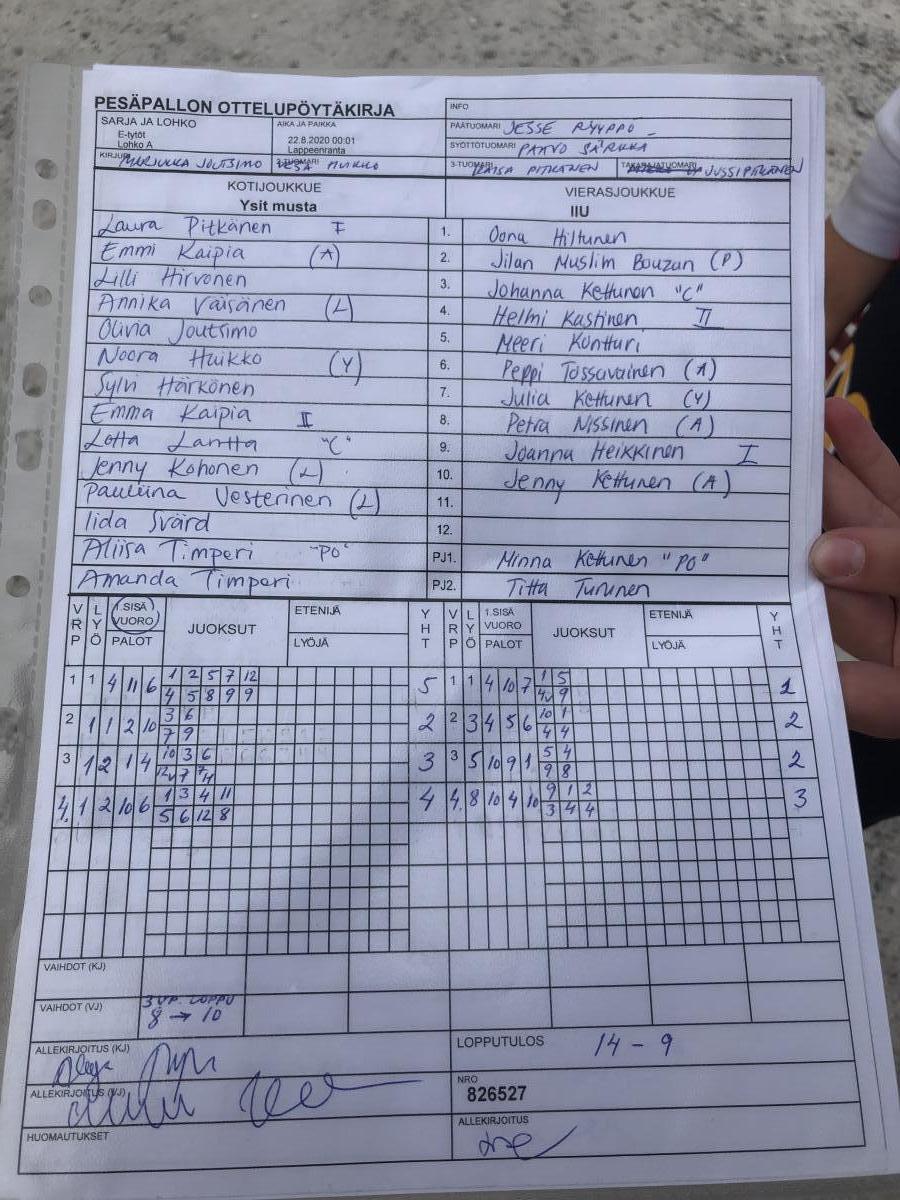 PESÄPALLON OTTELUPÖYTÄKIRJA
INFO
SARJA JA LOHKO
E-tytöt
Lohko A
AIKA JA PAIKKA
22.8.2020 00:01
Lappeenranta
PÄÄTUOMARI JESSE RYYPPÖ
SYÖTTÖTUOMARI PAAVO SÄRKKÄ
KIRJURI MARJUKKA JOUTSIMO
2-TUOMARI VESA HUIKKO
3-TUOMARI KAISA PITKÄNEN
TAKARAJATUOMARI JUSSI PITKÄNEN
KOTIJOUKKUE
Ysit musta
VIERASJOUKKUE
IIU
Laura Pitkänen I 1. Oona Hiltunen
Emmi Kaipia (A) 2. Jilan Muslim Bouzan (P)
Lilli Hirvonen 3. Johanna Kettunen "C"
Annika Väisänen (L) 4. Helmi Kastinen II
Olivia Joutsimo 5. Meeri Kontturi
Noora Huikko (Y) 6. Peppi Tossavainen (A)
Sylvi Härkönen 7. Julia Kettunen (Y)
Emma Kaipia II 8. Petra Nissinen (A)
Lotta Lantta "C" 9. Joanna Heikkinen I
Jenny Kohonen (L) 10. Jenny Kettunen (A)
Pauliina Vesterinen (L) 11.
Iida Svärd 12.
Aliisa Timperi "PO" PJ1. Minna Kettunen "PO"
Amanda Timperi PJ2. Titta Turunen
VRP LYÖ 1.SISÄ VUORO PALOT JUOKSUT ETENIJÄ LYÖJÄ YHT VRP LYÖ 1.SISÄ VUORO PALOT JUOKSUT ETENIJÄ LYÖJÄ YHT
1 1 4 11 6 1 2 5 7 12 5 1 1 4 10 7 1 5 1
4 5 8 9 9 4v 9
2 1 1 2 10 3 6 2 2 3 4 5 6 10 1 2
7 9 4 4
3 1 2 1 4 10 3 6 3 3 5 10 9 1 5 4 2
12v 7 9 8
4. 1 2 10 6 1 3 4 11 4 4. 8 10 4 10 9 1 2 3
5 6 12 8 3 4 4
VAIHDOT (KJ)
VAIHDOT (VJ) 3 VP. LOPPU
8 → 10
ALLEKIRJOITUS (KJ)
LOPPUTULOS 14 - 9
ALLEKIRJOITUS (VJ)
NRO
826527
HUOMAUTUKSET
ALLEKIRJOITUS